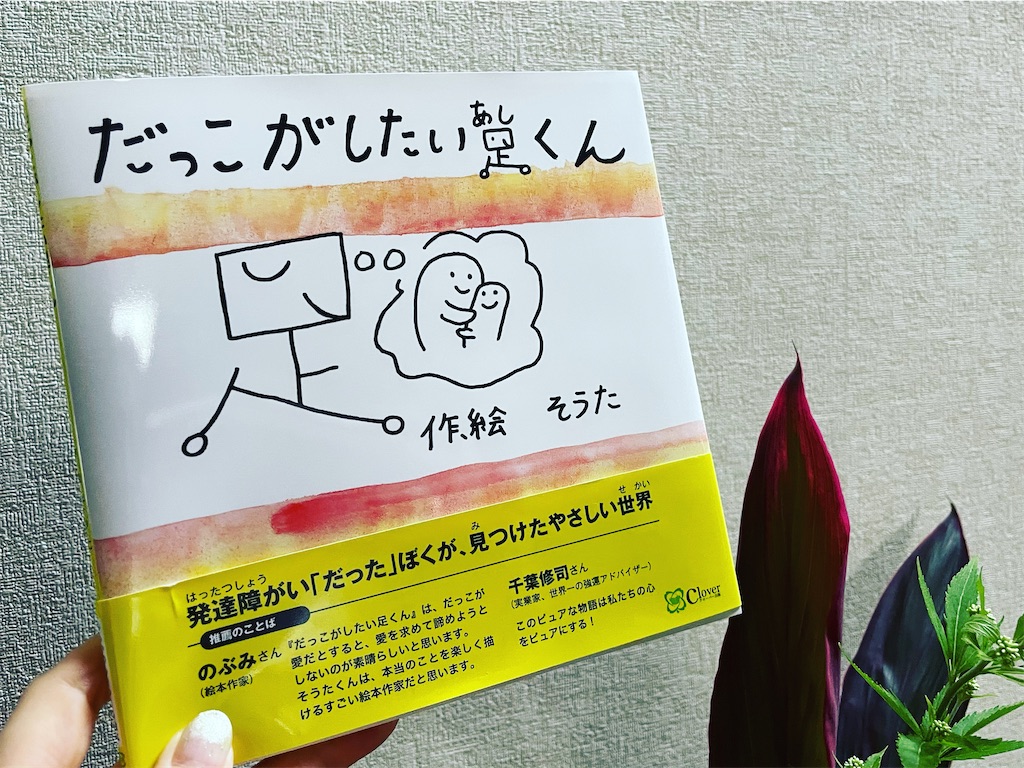 だっこがしたい足くん
あし
作、絵 そうた
はったつしょう み せかい
発達障がい「だった」ぼくが、見つけたやさしい世界
推薦のことば
のぶみさん
(絵本作家)
『だっこがしたい足くん』は、だっこが
愛だとすると、愛を求めて諦めようと
しないのが素晴らしいと思います。
そうたくんは、本当のことを楽しく描
けるすごい絵本作家だと思います。
千葉修司さん
(実業家、世界一の強運アドバイザー)
このピュアな物語は私たちの心
をピュアにする!
Clover